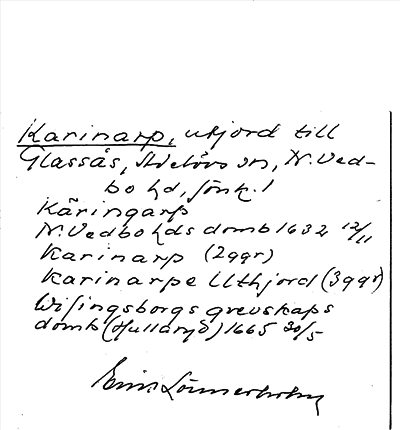 Karinarp, utjord till
Glassås, Adelövs sn, N. Ved-
bo hd, Jönk. l
Käringarp
N. Vedbo hds domb 1632 12/11
Karinarp (2ggr)
Karinarpe Uthjord (3ggr)
Wisingsborgs grevskaps
domb () 1665 30/5